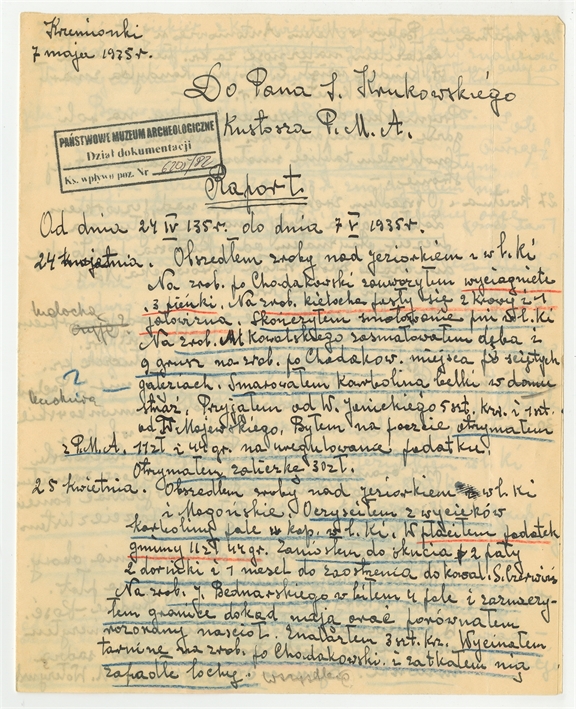 Krzemionki
7 maja 1935 r.
Do Pana S. Krukowskiego
Kustosza P. M. A.
PAŃSTWOWE MUZEUM ARCHEOLOGICZNE
Dział dokumentacji
Ks. wpływu poz. Nr
Raport.
Od dnia 24 IV 135 r. do dnia 7 V 1935 r.
24 kwietnia. Obszedłem zroby nad jeziorkiem i w l. Ki
Na zrob. po Chodakowski zauważyłem wyciągnięte
3 pieńki. Na zrob. Kielocha pasły się 2 krowy i 1
jałowizna. Skończyłem smołowanie pni w l. Ki
Na zrob. M. Kowalskiego zasmołowałem dęba i
9 grusz na zrob. po Chodakow. miejsca po ściętych
gałęziach. Smarowałem karboliną belki w domu
straż. Przyjąłem od W. Jenickiego 5 szt. krz. i 1 szt.
od W. Majewskiego. Byłem na poczcie otrzymałem
z P.M.A. 11 zł i 44 gr. na uregulowanie podatku.
Otrzymałem zaliczkę 30 zł.
25 kwietnia. Obszedłem zroby nad jeziorkiem w l. Ki
i Magońskie. Oczyściłem z wycieków
karboliny pale kop. w l. Ki. Wpłaciłem podatek
gminny 11 zł 44 gr. Zaniosłem do skucia 2 pały
2 i 1 do zaostrzenia do kowal. S. Czerwiń
Na zrob. J. Bednarskiego wbiłem 4 pale i zaznaczy-
łem granice dokąd mają orać porównałem
rozorany nasyp. Znalazłem 3 szt. krz. Wycinałem
tarninę na zrob. po Chodakowski. i zatkałem nią
zapadłe lochy.